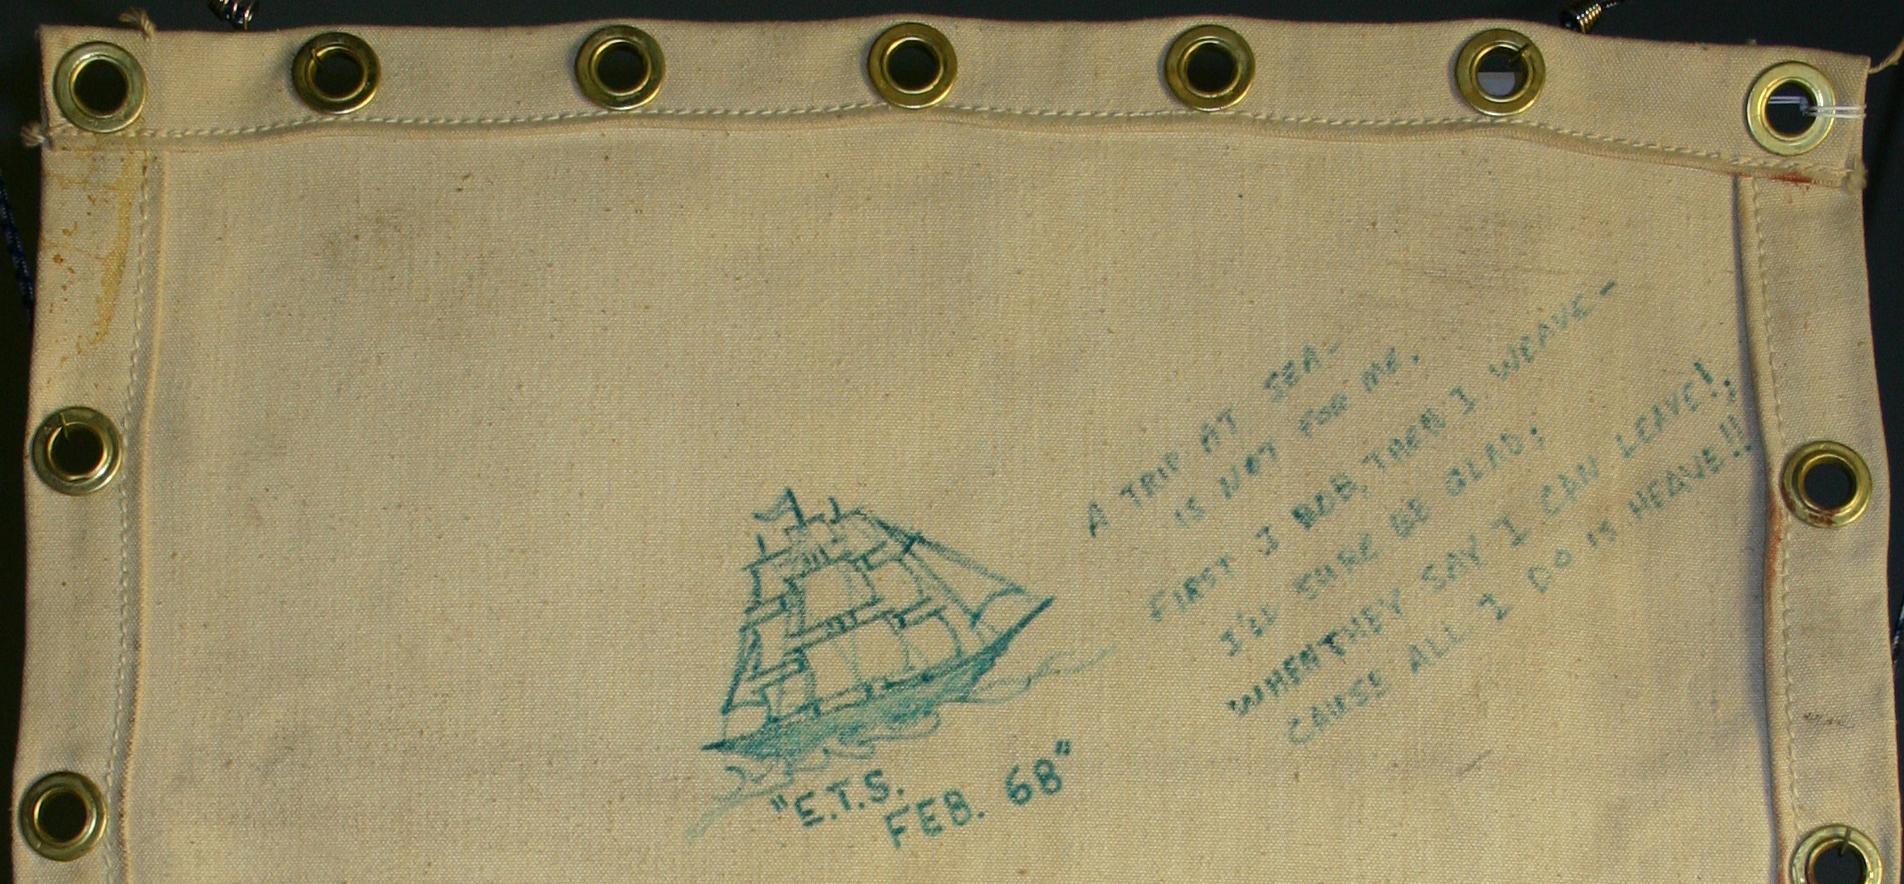 A TRIP AT SEA-
IS NOT FOR ME.
FIRST I BOB, THEN I WEAVE-
I'LL SURE BE GLAD;
WHEN THEY SAY I CAN LEAVE!,
CAUSE ALL I DO IS HEAVE!!
"E.T.S.
FEB. 68"